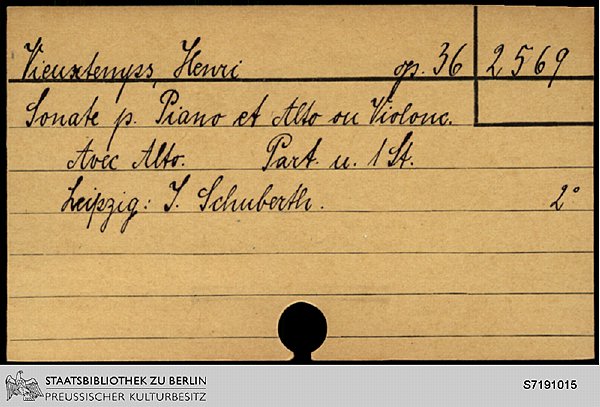 Vieuxtemps, Henri op. 36 2569
Sonate p. Piano et Alto ou Violonc.
Avec Alto. Part. u. 1 St.
Leipzig: J. Schuberth. 2°
STAATSBIBLIOTHEK ZU BERLIN
PREUSSISCHER KULTURBESITZ
S7191015